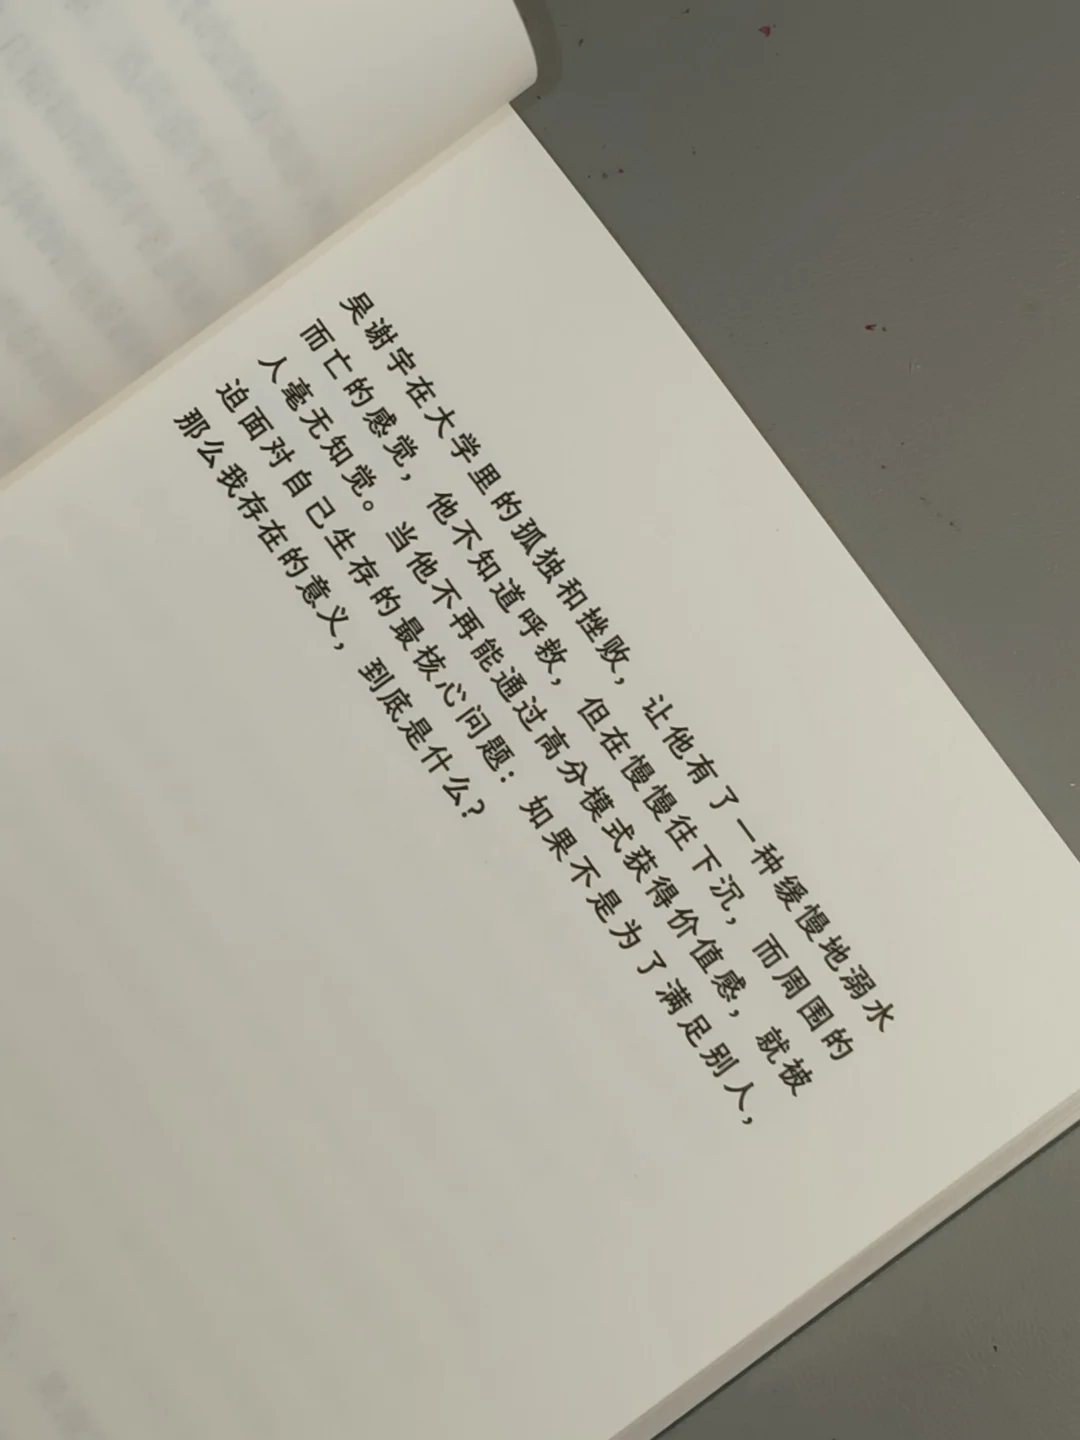 吴谢宇在大学里的孤独和挫败，让他有了一种缓慢地溺水
而亡的感觉，他不知道呼救，但在慢慢往下沉，而周围的
人毫无知觉。当他不再能通过高分模式获得价值感，就被
迫面对自己生存的最核心问题：如果不是为了满足别人，
那么我存在的意义，到底是什么？